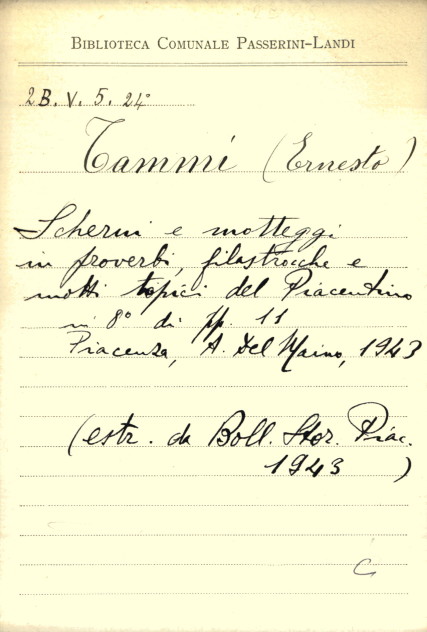 BIBLIOTECA COMUNALE PASSERINI-LANDI
2B. V. 5. 24°
Tammi (Ernesto)
Scherni e motteggi
in proverbi, filastrocche e
motti topici del Piacentino
in 8° di pp. 11
Piacenza, A. Del Maino, 1943
(estr. da Boll. Stor. Piac.
1943 )
C